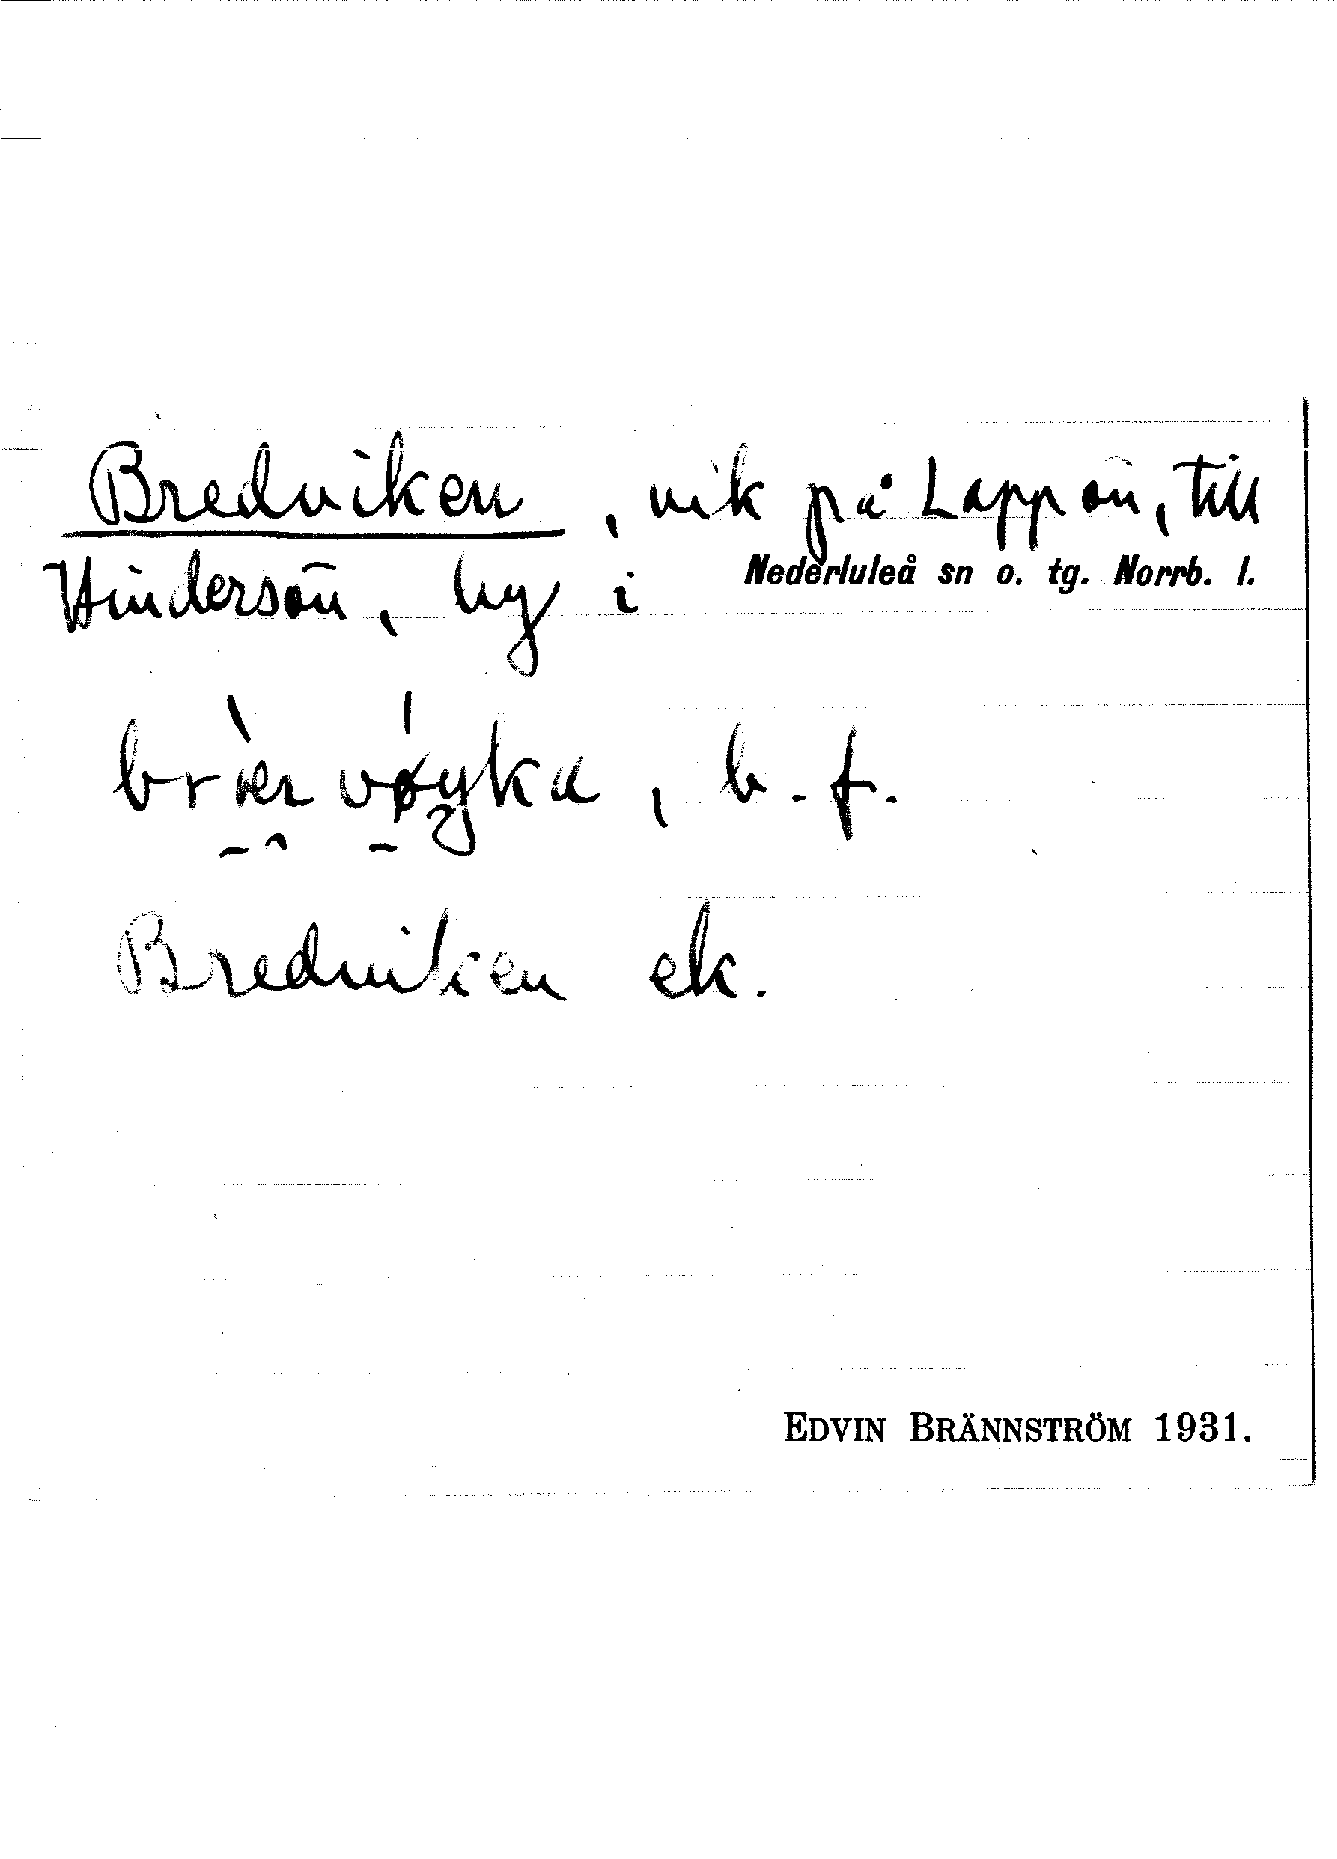 Bredviken, vik på Lappön, till
Hindersön, by i Nederluleå sn o. tg. Norrb. l.
, b. f.
Bredviken ek.
EDVIN BRÄNNSTRÖM 1931.